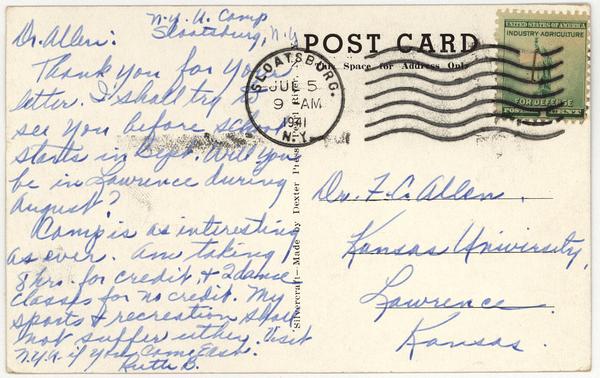 N.Y.U. Camp
Sloatsburg, N.Y.
Dr. Allen:
Thank you for your
letter. I shall try to
see you before school
starts in Sept. Will you
be in Lawrence during
August?
Camp is as interesting
as ever. Am taking
8 hrs. for credit & 2 dance
classes for no credit. My
sports & recreation shall
not suffer either. Visit
N.Y.U. if you come East.
Ruth B.
Silvercraft—Made by Dexter Press, Pearl River,
POST CARD
Space for Address Only
SLOATSBURG.
JUL 5
9 AM
1941
N.Y.
UNITED STATES OF AMERICA
INDUSTRY-AGRICULTURE
FOR DEFENSE
Dr. F. C. Allen,
Kansas University,
Lawrence.
Kansas.